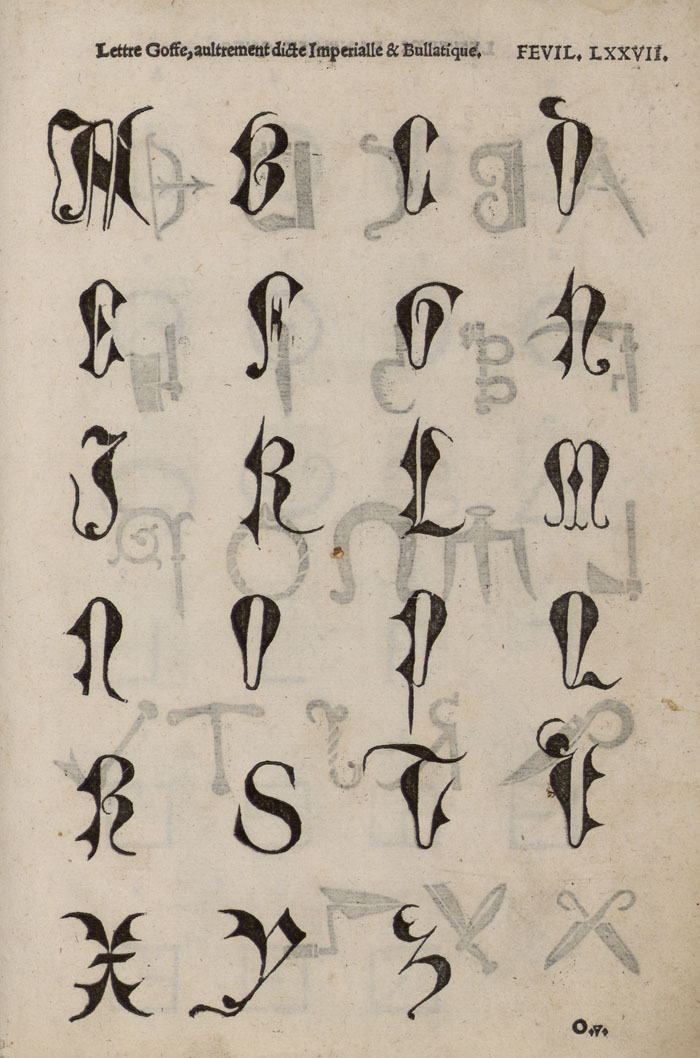 Lettre Goffe, aultrement dicte Imperialle & Bullatique. FEVIL. LXXVII.
A B C D
E F G H
I K L M
N O P Q
R S T V
X Y Z
O.v.